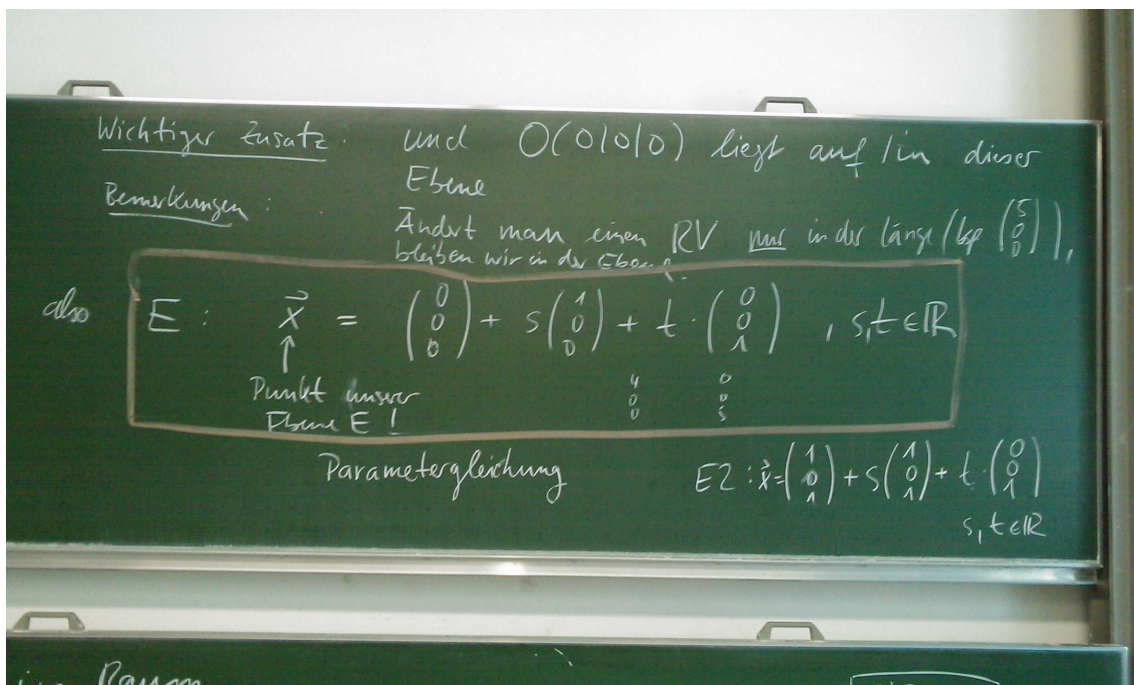 Wichtiger Zusatz: und O(0|0|0) liegt auf/in dieser
Ebene
Bemerkungen:
Ändert man einen RV nur in der Länge (bsp (5 0 0)),
bleiben wir in der Ebene.
also E: x⃗ = (0 0 0) + s (1 0 0) + t · (0 0 1) , s,t ∈ ℝ
↑
Punkt unserer
Ebene E !
4 0 0   0 0 5
Parametergleichung
E2: x⃗ = (1 0 1) + s (1 0 1) + t · (0 0 1)
s,t ∈ ℝ
Raum